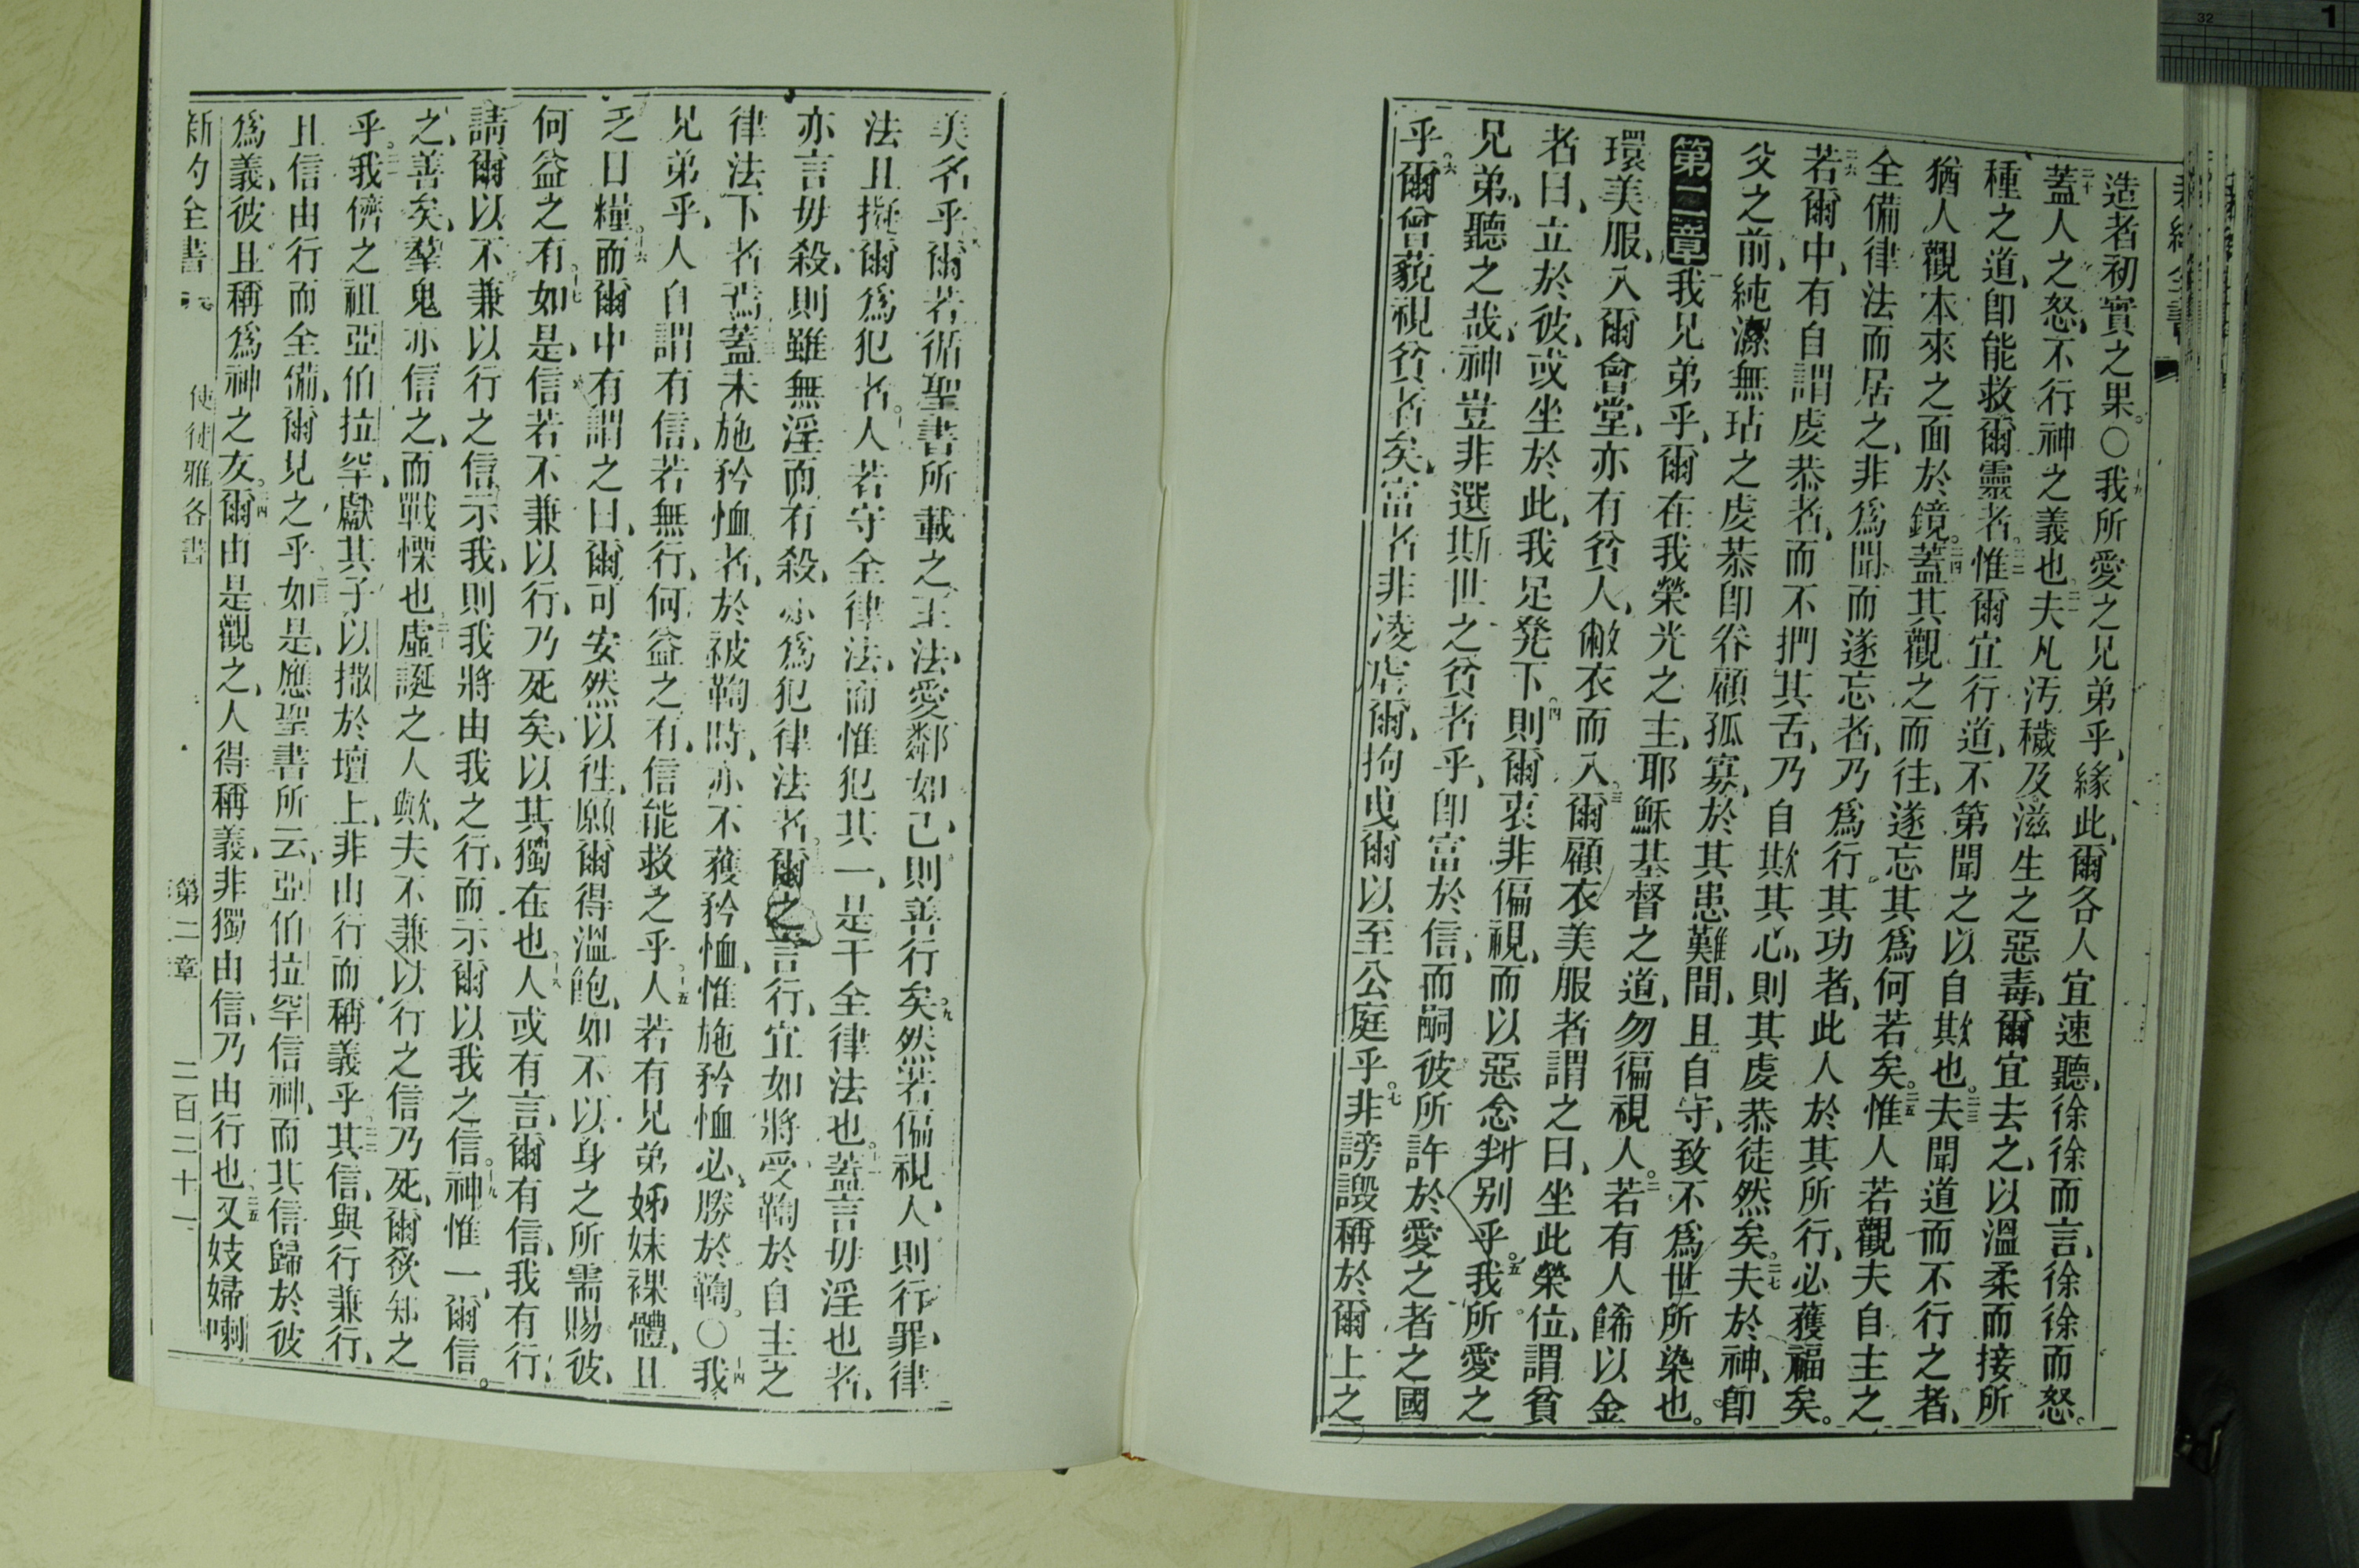 造者初實之果。〇十九我所愛之兄弟乎、緣此、爾各人宜速聽、徐徐而言、徐徐而怒。
二十蓋人之怒、不行神之義也。二一夫凡污穢及滋生之惡毒、爾宜去之、以溫柔而接所
種之道、卽能救爾靈者。二二惟爾宜行道、不第聞之以自欺也。二三夫聞道而不行之者、
猶人觀本來之面於鏡。二四蓋其觀之而往、遂忘其爲何若矣。二五惟人若觀夫自主之
全備律法而居之、非爲聞而遂忘者、乃爲行其功者、此人於其所行、必獲福矣。
二六若爾中、有自謂虔恭者、而不捫其舌、乃自欺其心、則其虔恭徒然矣。二七夫於神、卽
父之前、純潔無玷之虔恭卽眷顧孤寡、於其患難間、且自守、致不爲世所染也。
第二章一我兄弟乎、爾在我榮光之主、耶穌基督之道、勿徧視人。二若有人餙以金
環美服、入爾會堂、亦有貧人、敝衣而入。三爾顧衣美服者謂之曰、坐此榮位、謂貧
者曰、立於彼、或坐於此、我足凳下。四則爾衷非偏視、而以惡念判别乎。五我所愛之
兄弟、聽之哉、神豈非選斯世之貧者乎、卽富於信、而嗣彼所許於愛之者之國
乎。六爾曾藐視貧者矣、富者非凌虐爾、拘曵爾以至公庭乎。七非謗譭稱於爾上之
美名乎。八爾若循聖書所載之王法、愛鄰如己、則善行矣。九然若偏視人、則行罪、律
法且擬爾爲犯者。十人若守全律法、而惟犯其一、是干全律法也。十一蓋言毋淫也者、
亦言毋殺、則雖無淫而有殺、亦爲犯律法者。爾之言行、宜如將受鞫於自主之
律法下者焉。蓋未施矜恤者、於被鞫時、亦不獲矜恤、惟施矜恤、必勝於鞫。〇十四我
兄弟乎、人自謂有信、若無行、何益之有、信能救之乎。十五人若有兄弟姊妹裸體、且
乏日糧。十六而爾中有謂之曰、爾可安然以往、願爾得溫飽、如不以身之所需賜彼、
何益之有。十七如是、信若不兼以行、乃死矣、以其獨在也。十八人或有言、爾有信、我有行、
請爾以不兼以行之信示我、則我將由我之行、而示爾以我之信。十九神惟一、爾信
之、善矣、羣鬼亦信之、而戰慄也。二十虛誕之人歟、夫不兼以行之信乃死、爾欲知之
乎。二一我儕之祖亞伯拉罕、獻其子以撒於壇上、非由行而稱義乎。二二其信、與行兼行、
且信由行而全備、爾見之乎。二三如是、應聖書所云、亞伯拉罕信神、而其信歸於彼
爲義、彼且稱爲神之友。二四爾由是觀之、人得稱義、非獨由信、乃由行也。二五又妓婦喇
新約全書 使徒雅各書 第二章 二百二十一